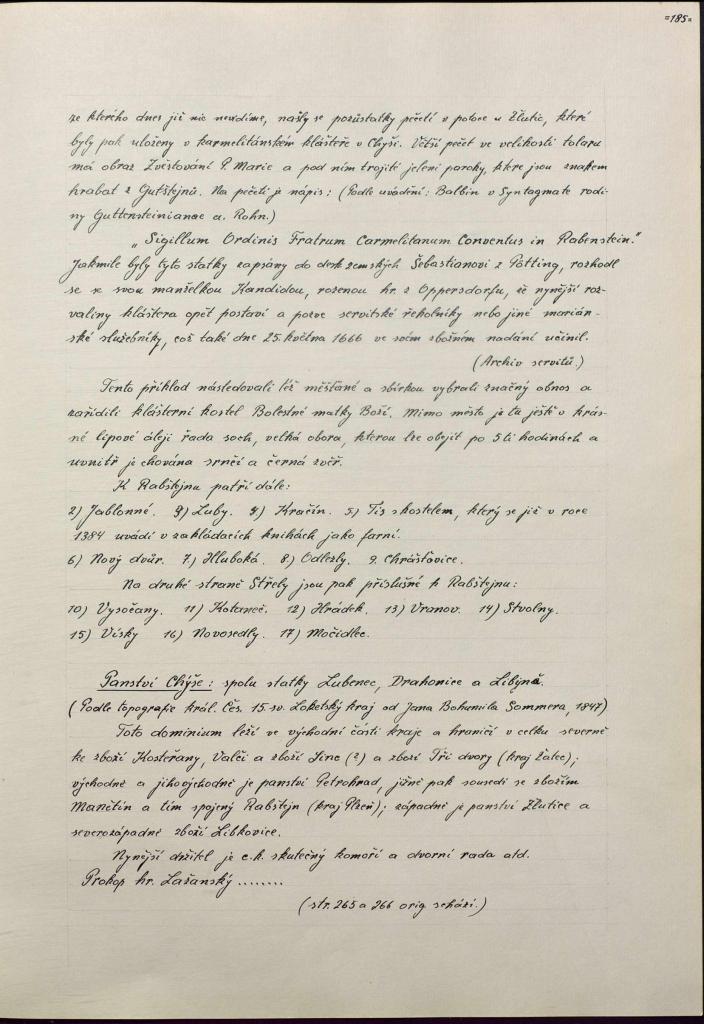 =185=
ze kterého dnes již nic nevidíme, našly se pozůstatky pečetí v potoce u Žlutic, které
byly pak uloženy v karmelitánském klášteře v Chyši. Větší pečeť ve velikosti tolaru
má obraz Zvěstování P. Marie a pod ním trojité jelení parohy, které jsou znakem
hrabat z Gutštejnů. Na pečeti je nápis: (Podle uvádění: Balbin v Syntagmate rodi-
ny Guttensteinianae a. Rohn.)
„Sigillum Ordinis Fratrum Carmelitanum Conventus in Rabenstein."
Jakmile byly tyto statky zapsány do desk zemských Šebastianovi z Pötting, rozhodl
se se svou manželkou Kandidou, rozenou hr. z Oppersdorfu, že nynější roz-
valiny kláštera opět postaví a pozve servitské řeholníky nebo jiné marián-
ské služebníky, což také dne 25. května 1666 ve svém zbožném nadání učinil.
(Archiv servitů.)
Tento příklad následovali též měšťané a sbírkou vybrali značný obnos a
zařídili klášterní kostel Bolestné matky Boží. Mimo město je tu ještě v krás-
né lipové aleji řada soch, velká obora, kterou lze obejít po 5ti hodinách a
uvnitř je chována srnčí a černá zvěř.
K Rabštejnu patří dále:
2) Jablonné. 3) Luby. 4) Kračín. 5) Tis s kostelem, který se již v roce
1384 uvádí v zakládacích knihách jako farní.
6) Nový dvůr. 7) Hluboká. 8) Odlezly. 9. Chrášťovice.
Na druhé straně Střely jsou pak příslušné k Rabštejnu:
10) Vysočany. 11) Kotaneč. 12) Hrádek. 13) Vranov. 14) Stvolny.
15) Vísky 16) Novosedly. 17) Močidlec.
Panství Chyše: spolu statky Lubenec, Drahonice a Libyně.
(Podle topografie král. Čes. 15. sv. Loketský kraj od Jana Bohumila Sommera, 1847)
Toto dominium leží ve východní části kraje a hraničí v celku severně
ke zboží Kostrčany, Valči a zboží Sinc (?) a zboží Tři dvory (kraj Žatec);
východně a jihovýchodně je panství Petrohrad, jižně pak sousedí se zbožím
Manětín a tím spojený Rabštejn (kraj Plzeň); západně je panství Žlutice a
severozápadně zboží Libkovice.
Nynější držitel je c.k. skutečný komoří a dvorní rada atd.
Prokop hr. Lažanský ........
(str. 265 a 266 orig. schází.)